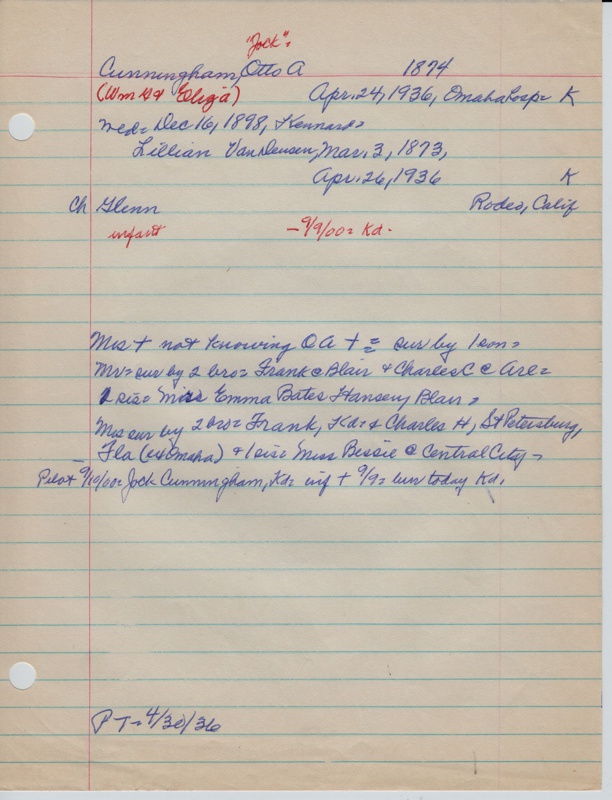 "Jock"=
Cunningham, Otto A 1874
(Wm G & Eliza) Apr. 24, 1936, Omaha hosp= K
med= Dec 16, 1898, Kennard=
Lillian VanDeusen, Mar. 3, 1873,
Apr. 26, 1936 K
Ch Glenn Rodeo, Calif
infant - 9/9/00= Kd.
Mrs + not knowing O A + = sur by 1 son=
Mr= sur by 2 bro= Frank @ Blair & Charles C @ Arl=
1 sis= Mrs Emma Bates Hansen, Blair=
Mrs sur by 2 bro= Frank, Kd= & Charles H, St Petersburg,
Fla (ex Omaha) & 1 sis= Miss Bessie @ Central City=
Pilot 9/10/00= Jock Cunningham, Kd= inf + 9/9= bur today Kd.
P T= 4/30/36